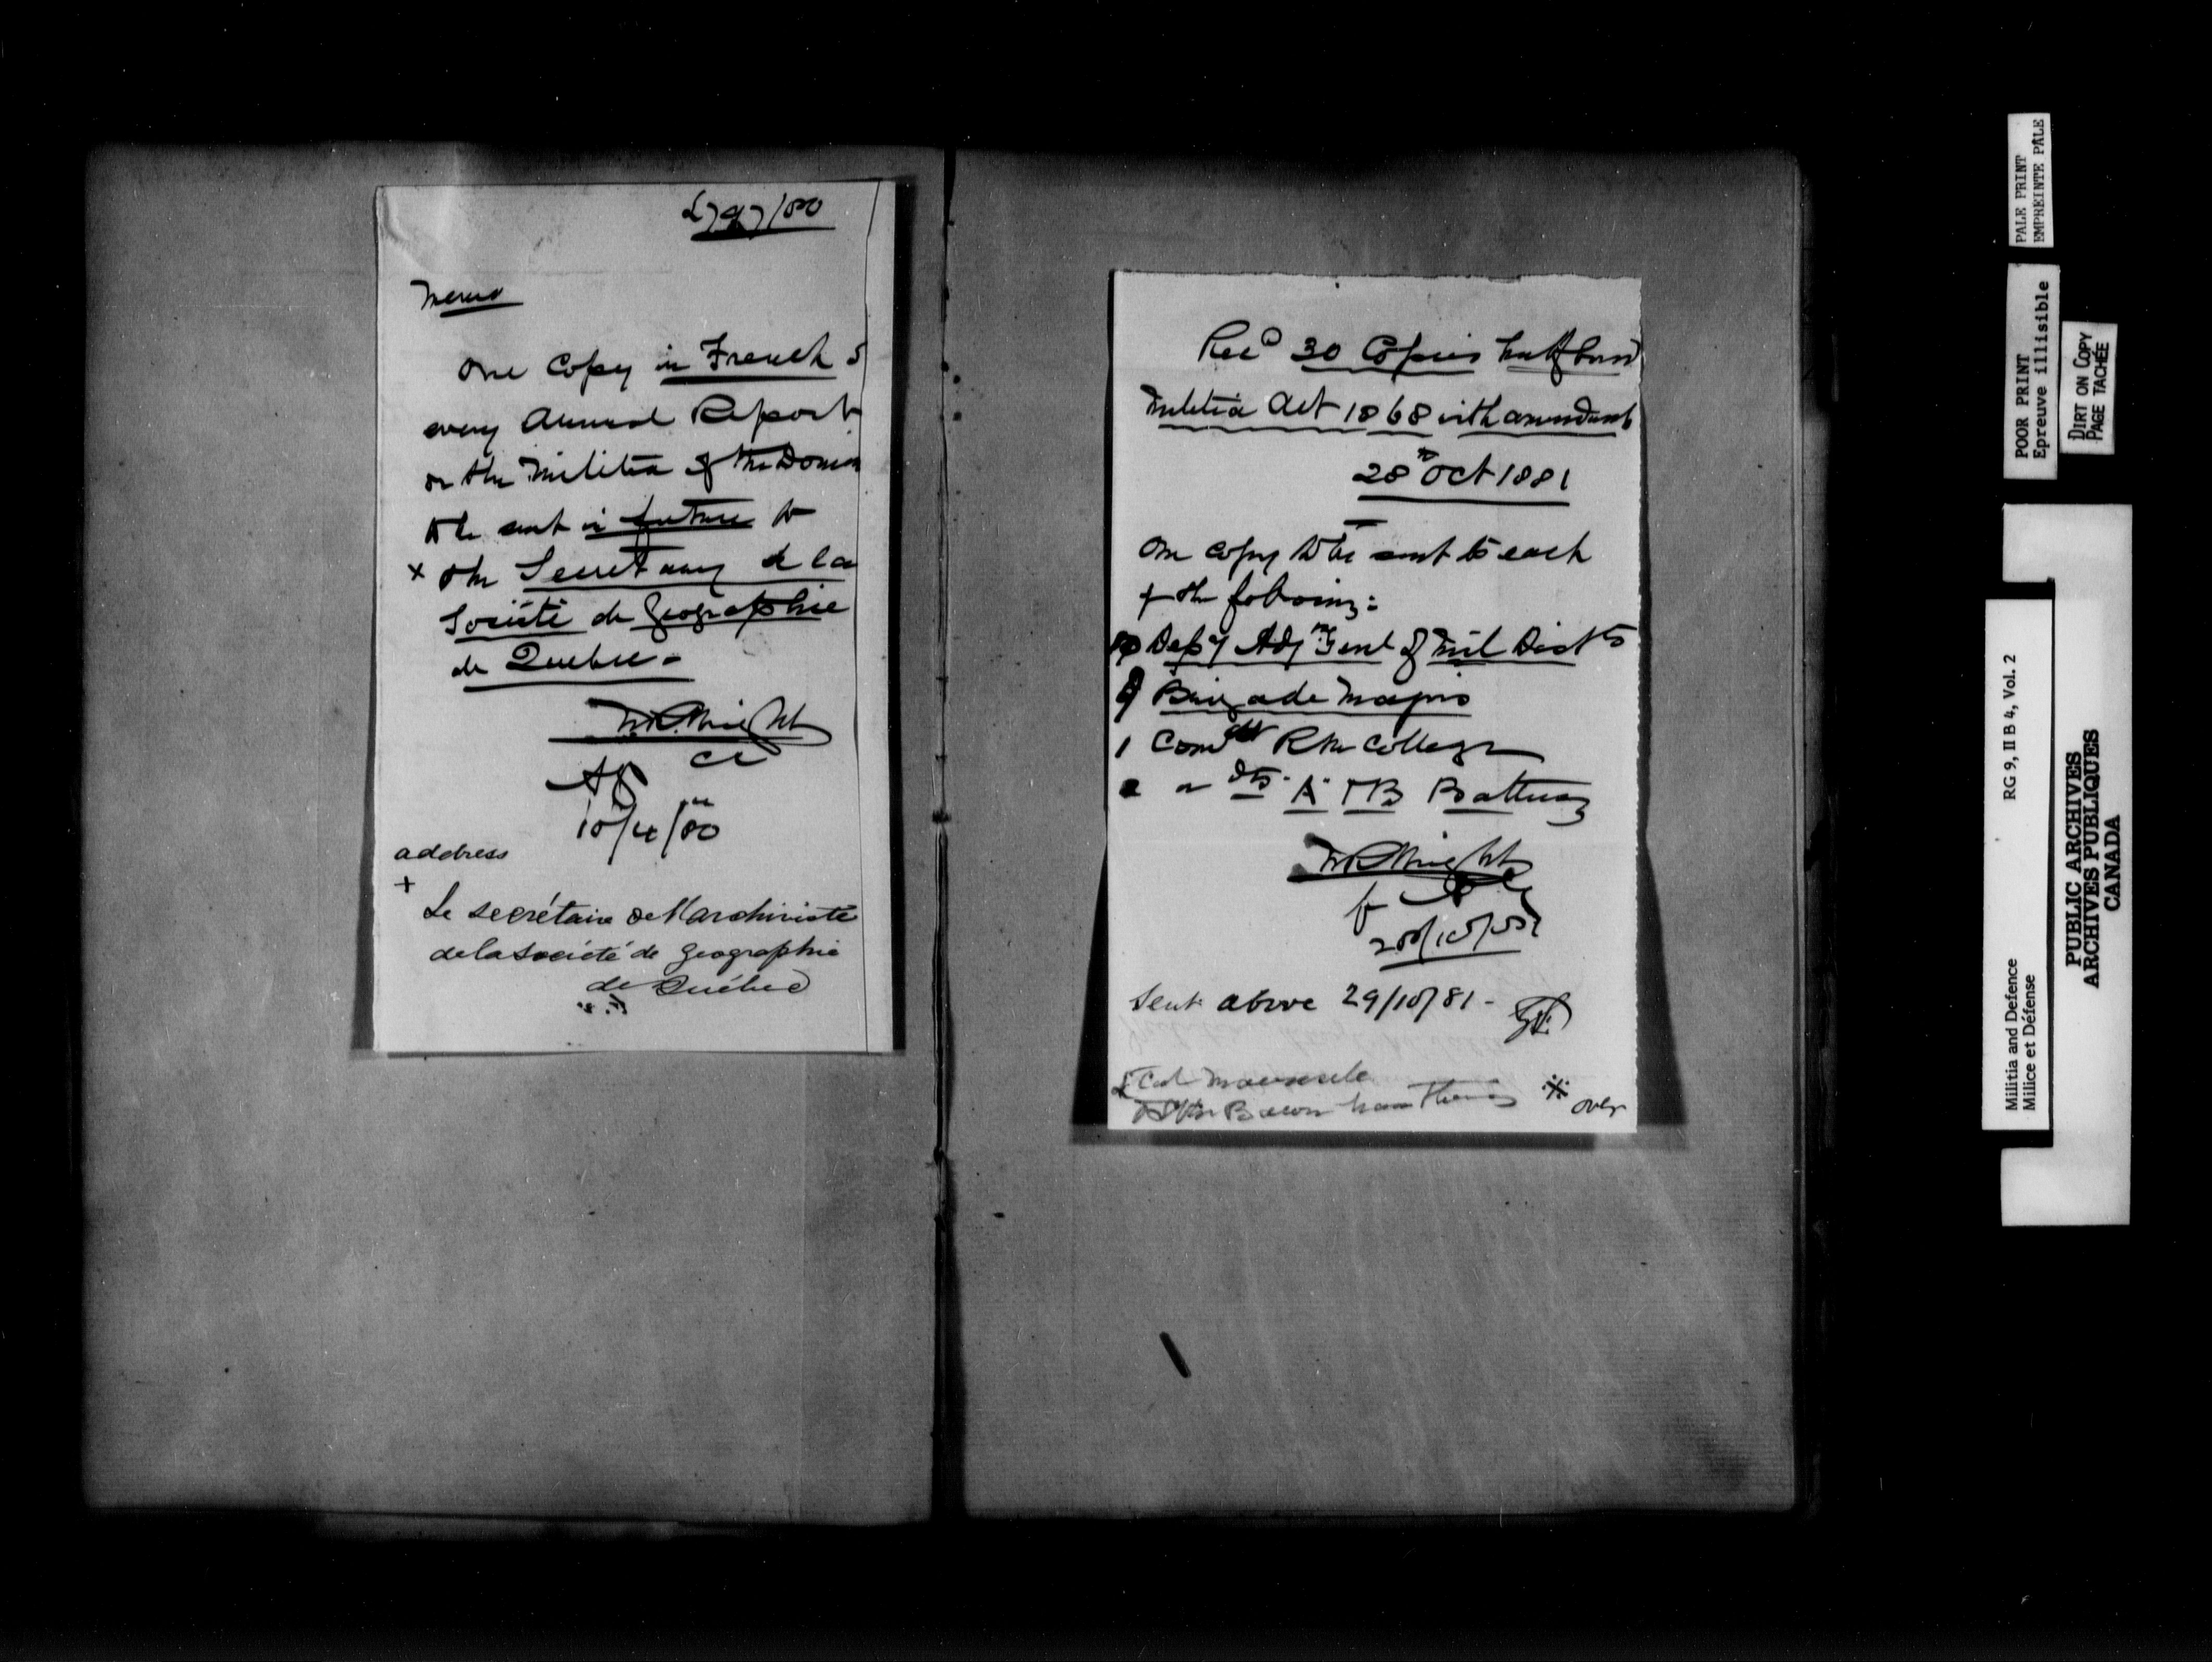 Memo
One Copy in French
every Annual Report
on the Militia of the Domin
to be sent in future to
x the Secretary de la
Société de Geographie
de Quebec -
address
+
Le secrétaire
de la Société de Geographie
de Québec
Recd 30 Copies half bound
Militia Act 1868 with amendments
28th Oct 1881
One copy to be sent to each
of the following:
Depy Adjts Genl of Mil Dists
9 Brigade Majors
1 Comdt R M College
A & B Battery
Sent above 29/10/81 -
over
PALE PRINT
EMPREINTE PÂLE
POOR PRINT
Epreuve illisible
DIRT ON COPY
PAGE TACHÉE
Militia and Defence RG 9, II B 4, Vol. 2
Milice et Défense
PUBLIC ARCHIVES
ARCHIVES PUBLIQUES
CANADA